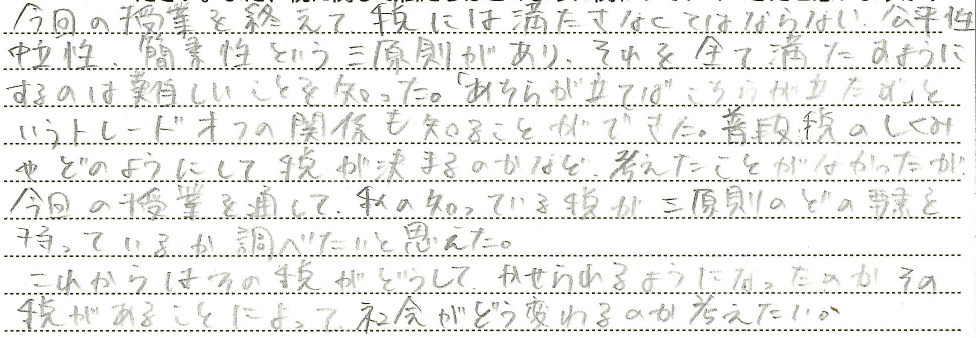 今回の授業を終えて税には満たさなくてはならない公平性
中立性、簡素性という三原則があり、それを全て満たすように
するのは難しいことを知った。「あちらが立てばこちらが立たず」と
いうトレードオフの関係も知ることができた。普段税のしくみ
やどのようにして税が決まるのかなど、考えたことがなかったが
今回の授業を通して、私の知っている税が三原則のどの要素を
持っているか調べたいと思えた。
これからはその税がどうして、かせられるようになったのかその
税があることによって、社会がどう変わるのか考えたい。